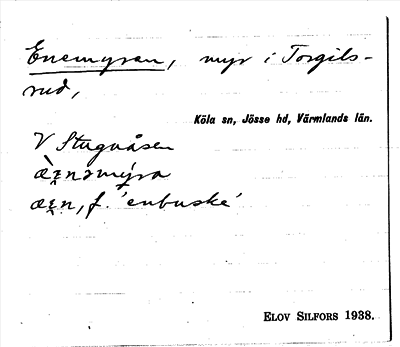 Enemyran, myr i Torgils-
rud,
Köla sn, Jösse hd, Värmlands län.
V Stugnåsen
f. 'enbuske'
ELOV SILFORS 1938.